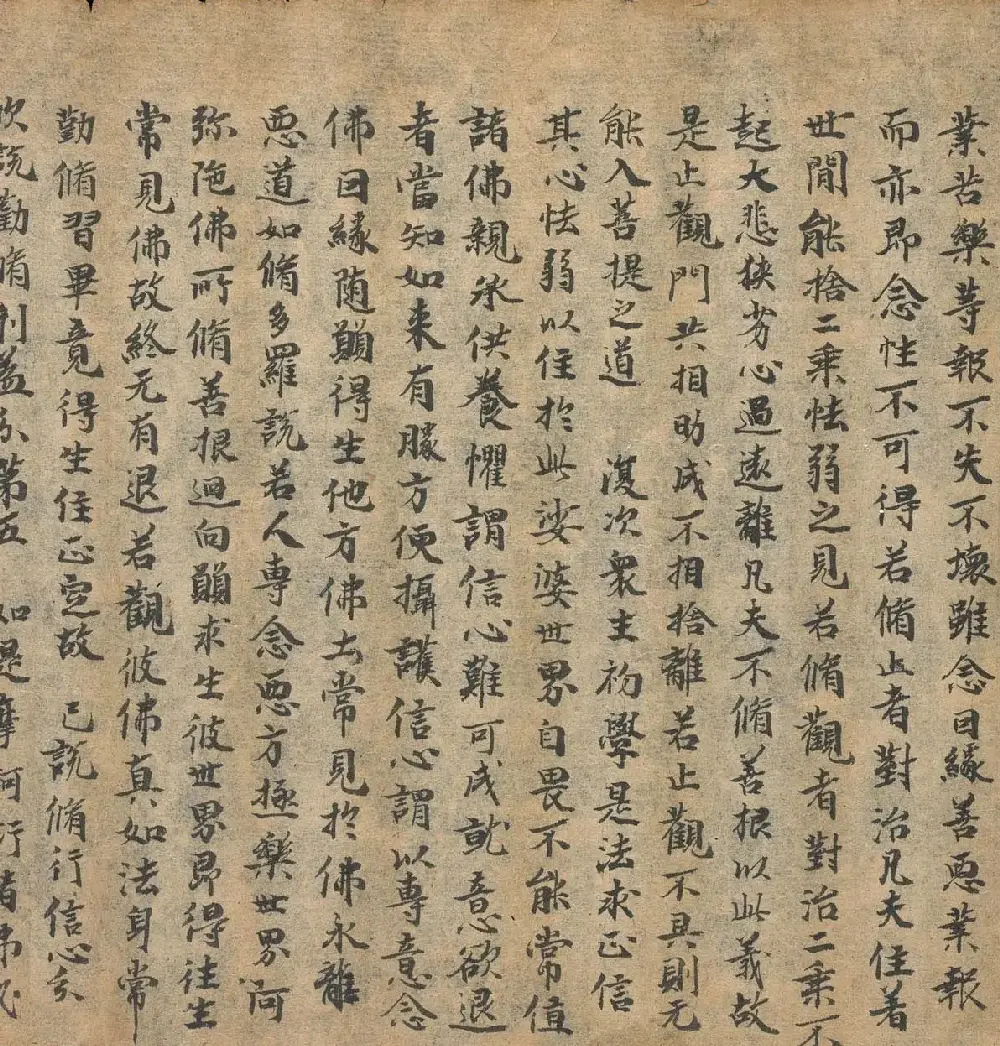 業苦樂等報不失不壞雖念因緣善惡業報
而亦即念性不可得若脩止者對治凡夫住着
世間能捨二乘怯弱之見若脩觀者對治二乘不
起大悲狹劣心過遠離凡夫不脩善根以此義故
是止觀門共相助成不相捨離若止觀不具則无
能入菩提之道 復次衆生初學是法求正信
其心怯弱以住於此娑婆世界自畏不能常值
諸佛親承供養懼謂信心難可成就意欲退
者當知如来有勝方便攝護信心謂以専意念
佛因緣随願得生他方佛土常見於佛永離
惡道如脩多羅說若人専念西方極樂世界阿
弥陁佛所脩善根迴向願求生彼世界即得往生
常見佛故終无有退若觀彼佛真如法身常
勤脩習畢竟得生住正定故 已說脩行信心分
次說勸脩利益分第五 如是摩訶衍諸佛